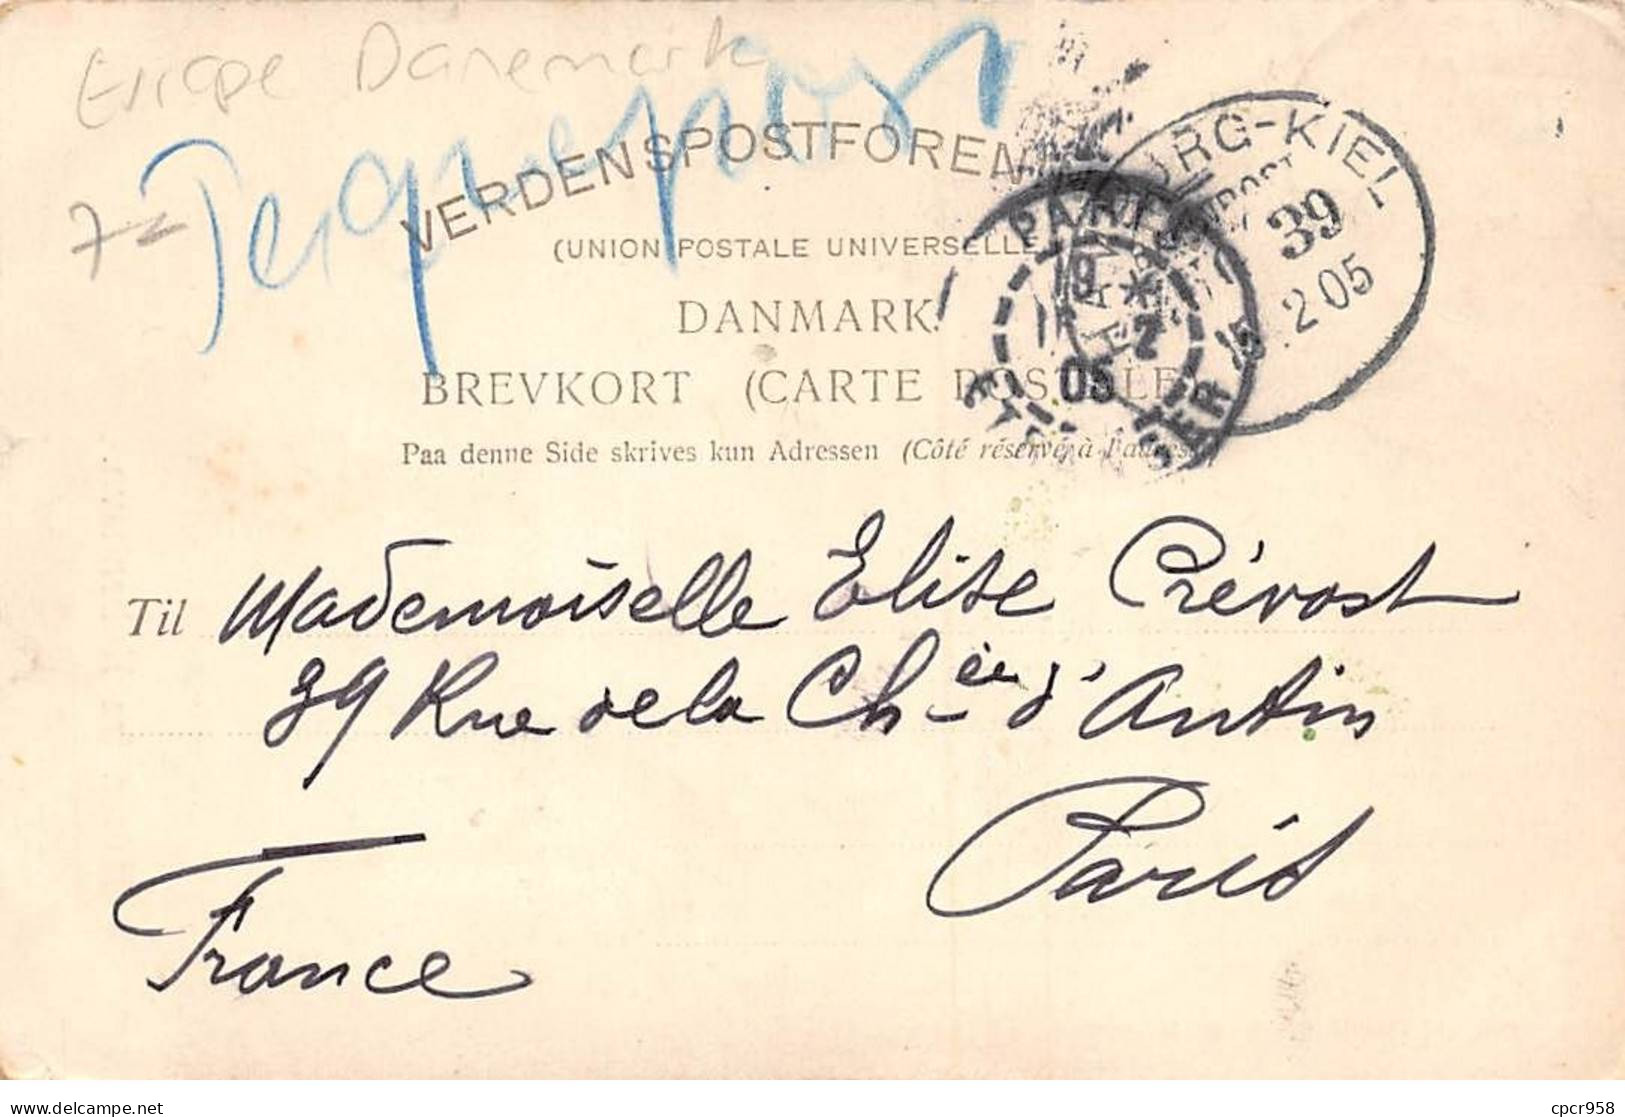 Europe Danemark
7=
VERDENSPOSTFORENIN
(UNION POSTALE UNIVERSELLE
DANMARK.
BREVKORT (CARTE POSTALE
Paa denne Side skrives kun Adressen (Côté réservé à l'adresse)
PARIS
19
2
05
-KIEL
39
2 05
Til Mademoiselle Elise Prévost
39 Rue de la Ch-ée d'Antin
Paris
France
cpcr958